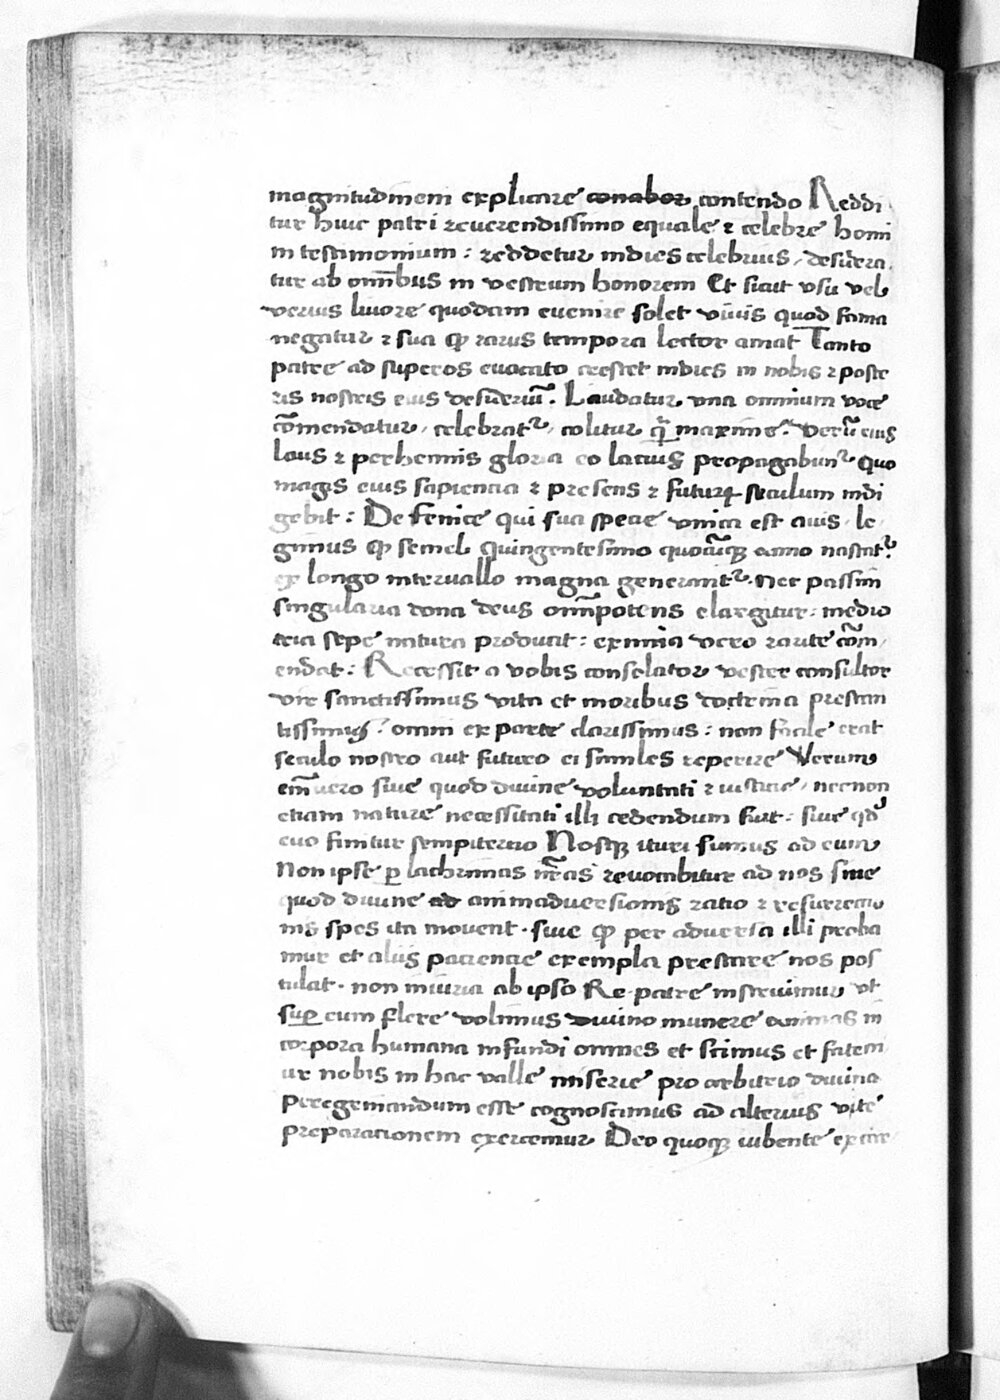 magnitudinem explicare conabor contendo Reddi
tur huic patri reuerendissimo equale ⁊ celebre homi
ni testimonium : reddetur indies celebrius , desidera
tur ab om̅ibus in vestrum honorem Et sicut vsu vel
verius liuore quodam euenire solet viuis quod fama
negatur ⁊ sua ꝙ rarus tempora lector amat Tanto
patre ad superos euocato crescet indies in nobis ⁊ poste
ris nostris eius desideriu̅ . Laudatur vna omnium voce
co̅mendatur , celebrat᷑ , colitur maxime . Veru̅ eius
laus ⁊ perhennis gloria eo lacius propagabun᷑ quo
magis eius sapiencia ⁊ presens ⁊ futurꝫ seculum indi
gebit : De fenice qui sua specie vnica est auis , le
gimus ꝙ semel quingentesimo quocu̅qꝫ anno nascat᷑
ex longo interuallo magna generant᷑ . Nec passim
singularia dona deus om̅ipotens elargitur : medio
cria sepe natura producit : eximia vero raritate co̅m
endat : Recessit a vobis consolator vester consultor
vir sanctissimus vita et moribus doctrina prestan
tissimus . omni ex parte clarissimus : non facile erat
seculo nostro aut futuro ei similes reperire Verum
em̅uero siue quod diuine voluntati ⁊ iusticie , necnon
etiam nature necessitati illi cedendum fuit : siue qd̅
euo finitur sempiterno Nosqꝫ ituri sumus ad eum
Non ipse ꝑ lachrimas nr̅as reuocabitur ad nos siue
quod diuine ad animaduersionis ratio ⁊ resurrectio
nis spes ita mouent . siue ꝙ per aduersa illi proba
mur et alijs paciencie exempla prestare nos pos
tulat . non iniuria ab ipso Re. patre instruimur vt
suꝑ eum flere volimus diuino munere animas in
corpora humana infundi omnes et scimus et fatem
ur nobis in hac valle miserie pro arbitrio diuina
peregrinandum esse cognoscimus ad alterius vite
preparacionem exercemur Deo quoqꝫ iubente exire